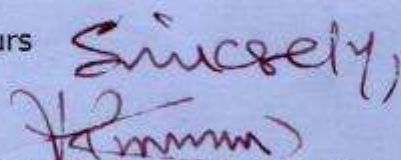 urs Sincsely,